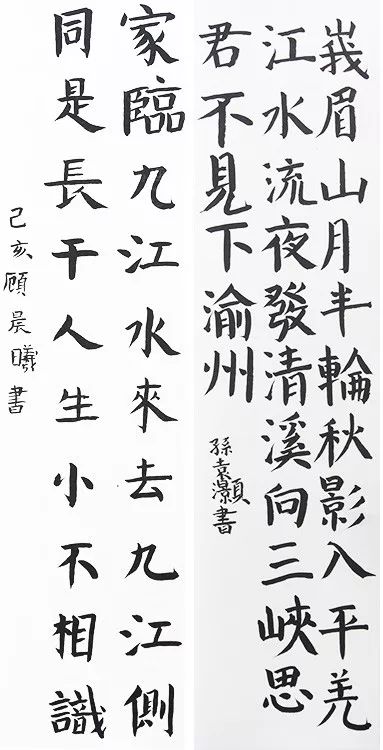 峩眉山月半輪秋影入平羌
江水流夜發清溪向三峽思
君不見下渝州
孫袁灝書
家臨九江水來去九江側
同是長干人生小不相識
己亥顾晨曦書